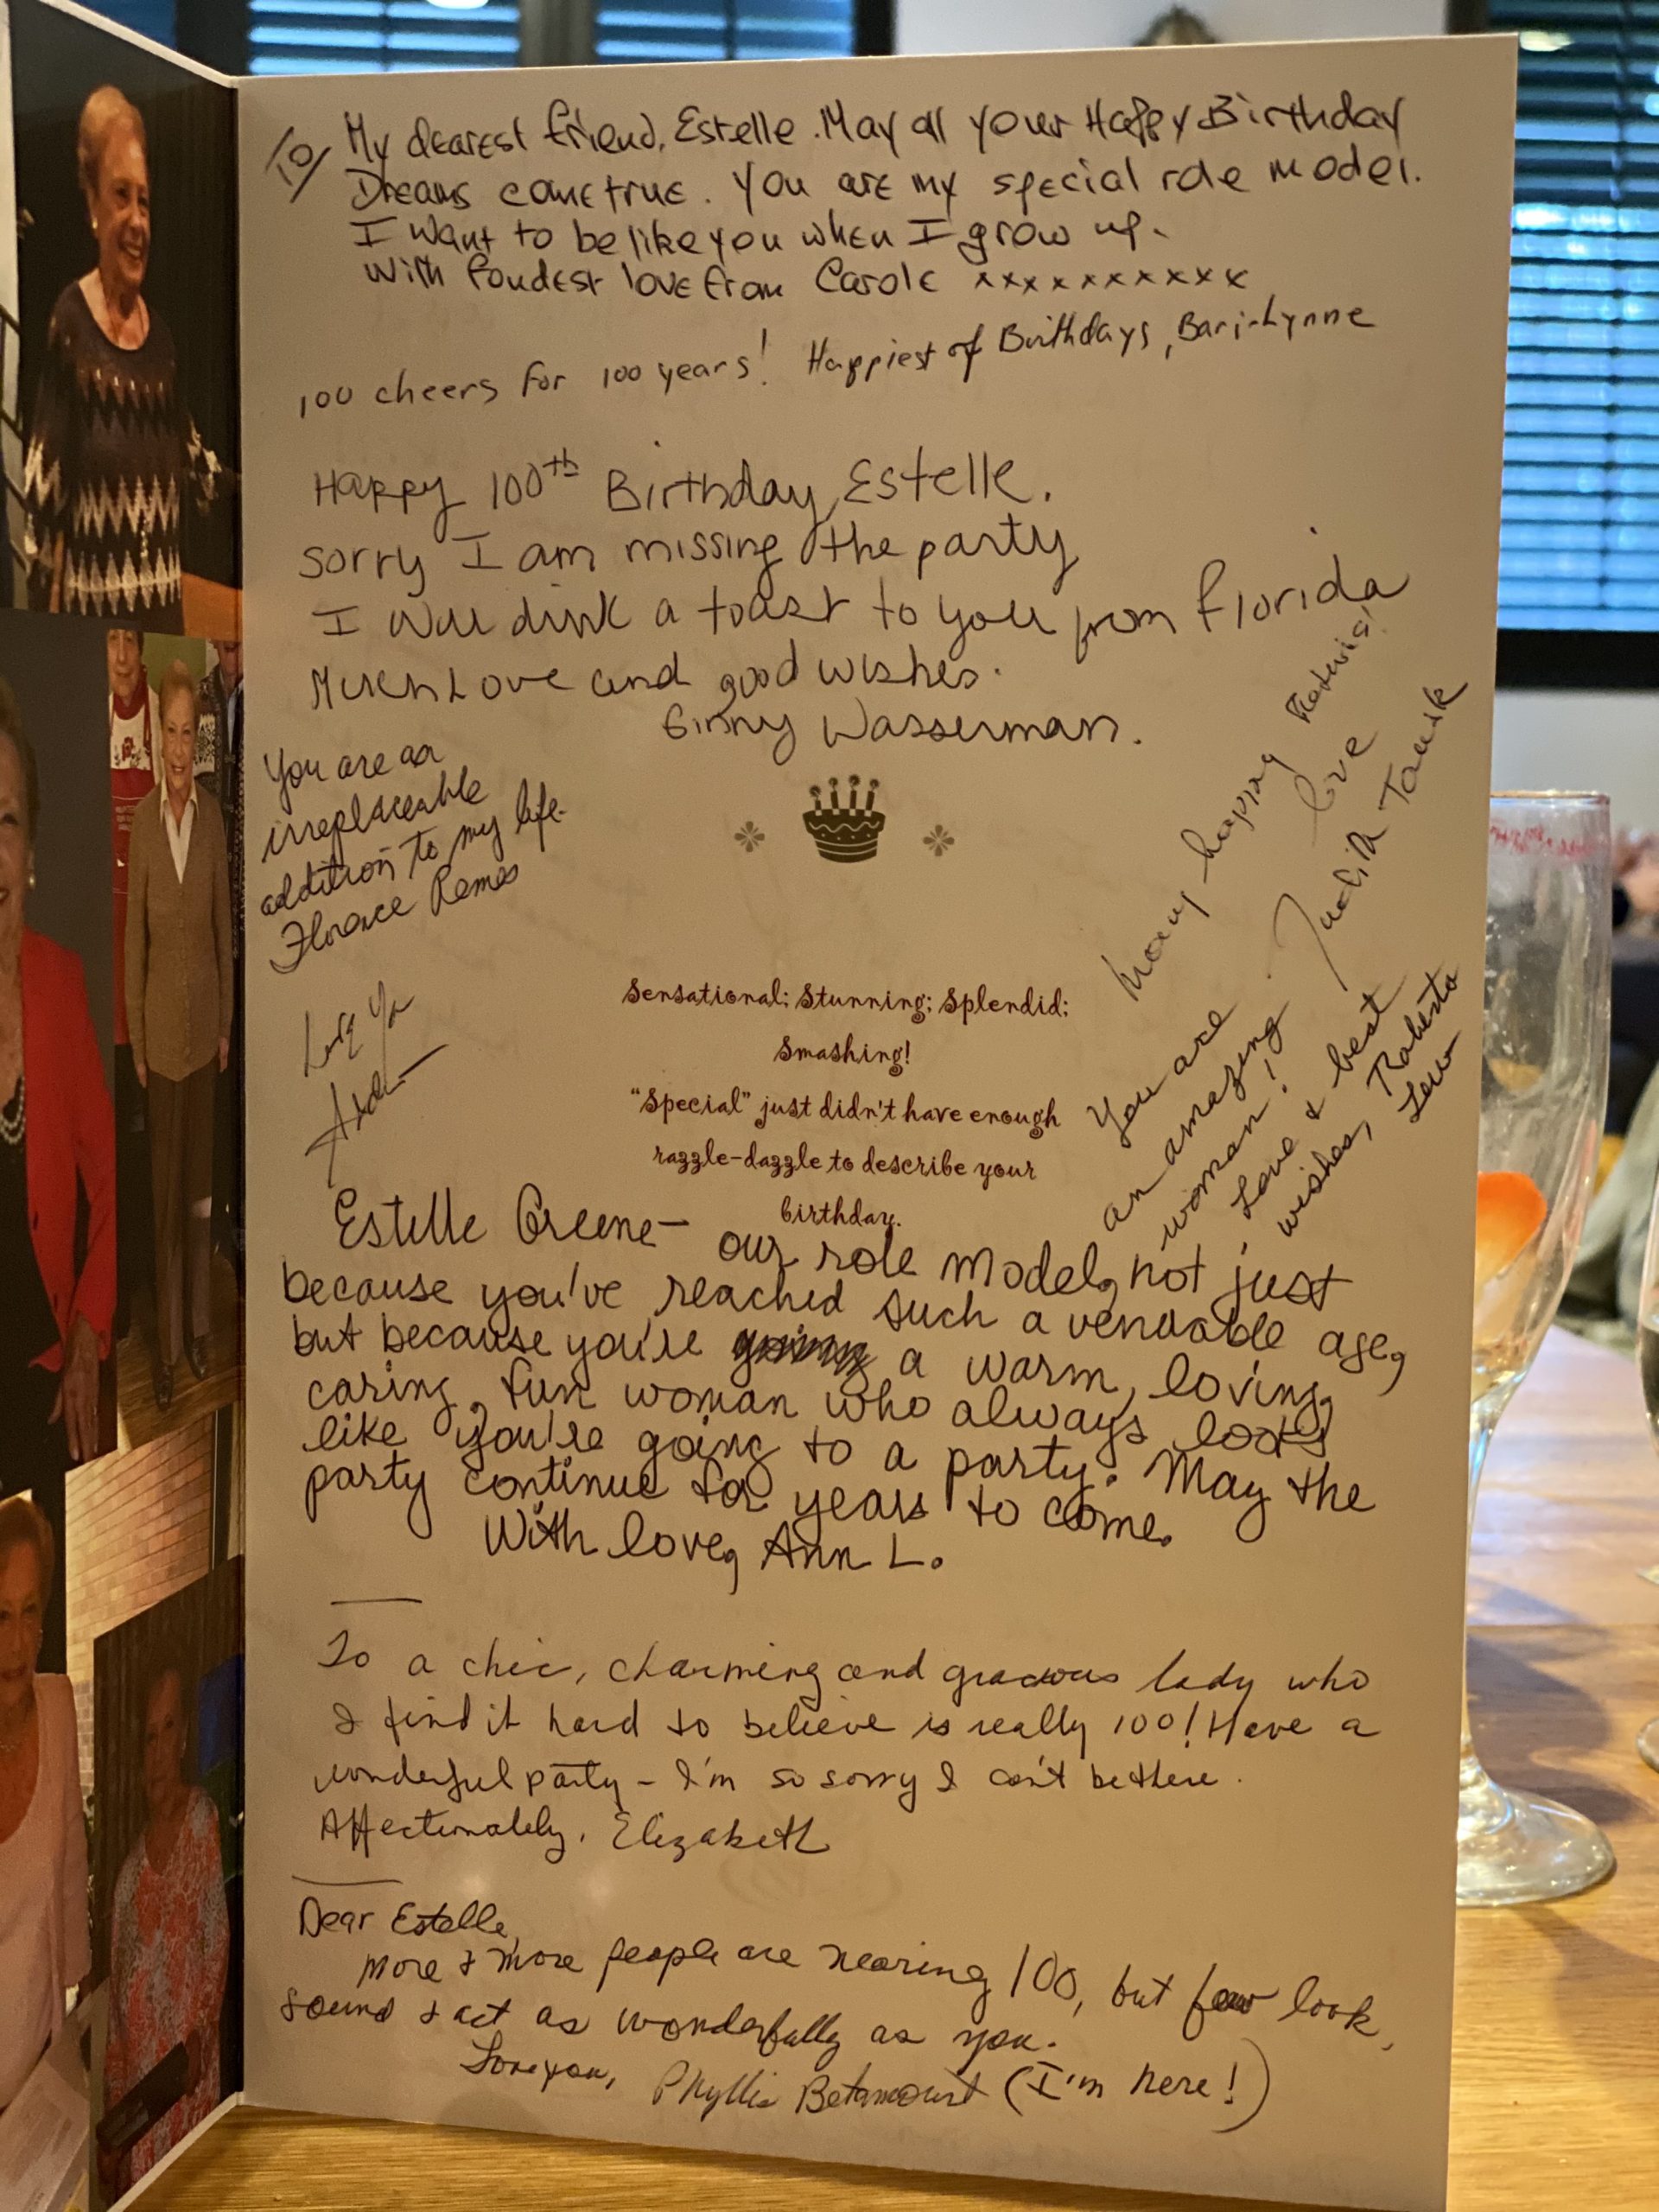 To My dearest friend, Estelle. May all your Happy Birthday
Dreams come true. You are my special role model.
I want to be like you when I grow up.
With fondest love from Carole xxxxxxxxxx
100 cheers for 100 years! Happiest of Birthdays, Bari-Lynne
Happy 100th Birthday, Estelle.
Sorry I am missing the party
I will drink a toast to you from Florida
Much Love and good wishes.
Ginny Wasserman.
You are an
irreplaceable
addition to my life.
Florence
Many happy Returns!
love
Judith
Love Ya
Sensational; Stunning; Splendid;
Smashing!
"Special" just didn't have enough
razzle-dazzle to describe your
birthday.
You are
an amazing
woman!
Love & best
wishes, Roberta
Lew
Estelle Greene— our role model, not just
because you've reached such a venerable age,
but because you're a warm, loving,
caring, fun woman who always looks
like you're going to a party. May the
party continue for years to come.
With love, Ann L.
To a chic, charming and gracious lady who
I find it hard to believe is really 100! Have a
wonderful party - I'm so sorry I can't be there.
Affectionately, Elizabeth
Dear Estelle,
More & more people are nearing 100, but few look,
sound & act as wonderfully as you.
Love you, Phyllis Betancourt (I'm here!)